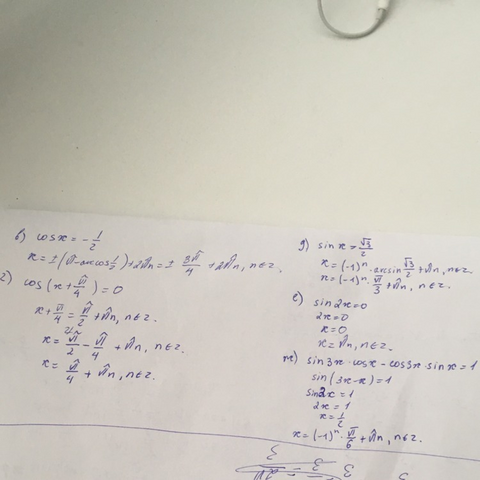 в) cosx = - 1/2
x = ±(π - arccos 1/2) + 2πn = ± 3π/4 + 2πn, n∈z.
г) cos(x + π/4) = 0
x + π/4 = π/2 + πn, n∈z.
x = π/2 - π/4 + πn, n∈z.
x = π/4 + πn, n∈z.
д) sin x = √3/2
x = (-1)ⁿ · arcsin √3/2 + πn, n∈z.
x = (-1)ⁿ · π/3 + πn, n∈z.
е) sin2x = 0
2x = 0
x = 0
x = πn, n∈z.
ж) sin3x · cosx - cos3x · sinx = 1
sin(3x - x) = 1
sin2x = 1
2x = 1
x = 1/2
x = (-1)ⁿ · π/6 + πn, n∈z.